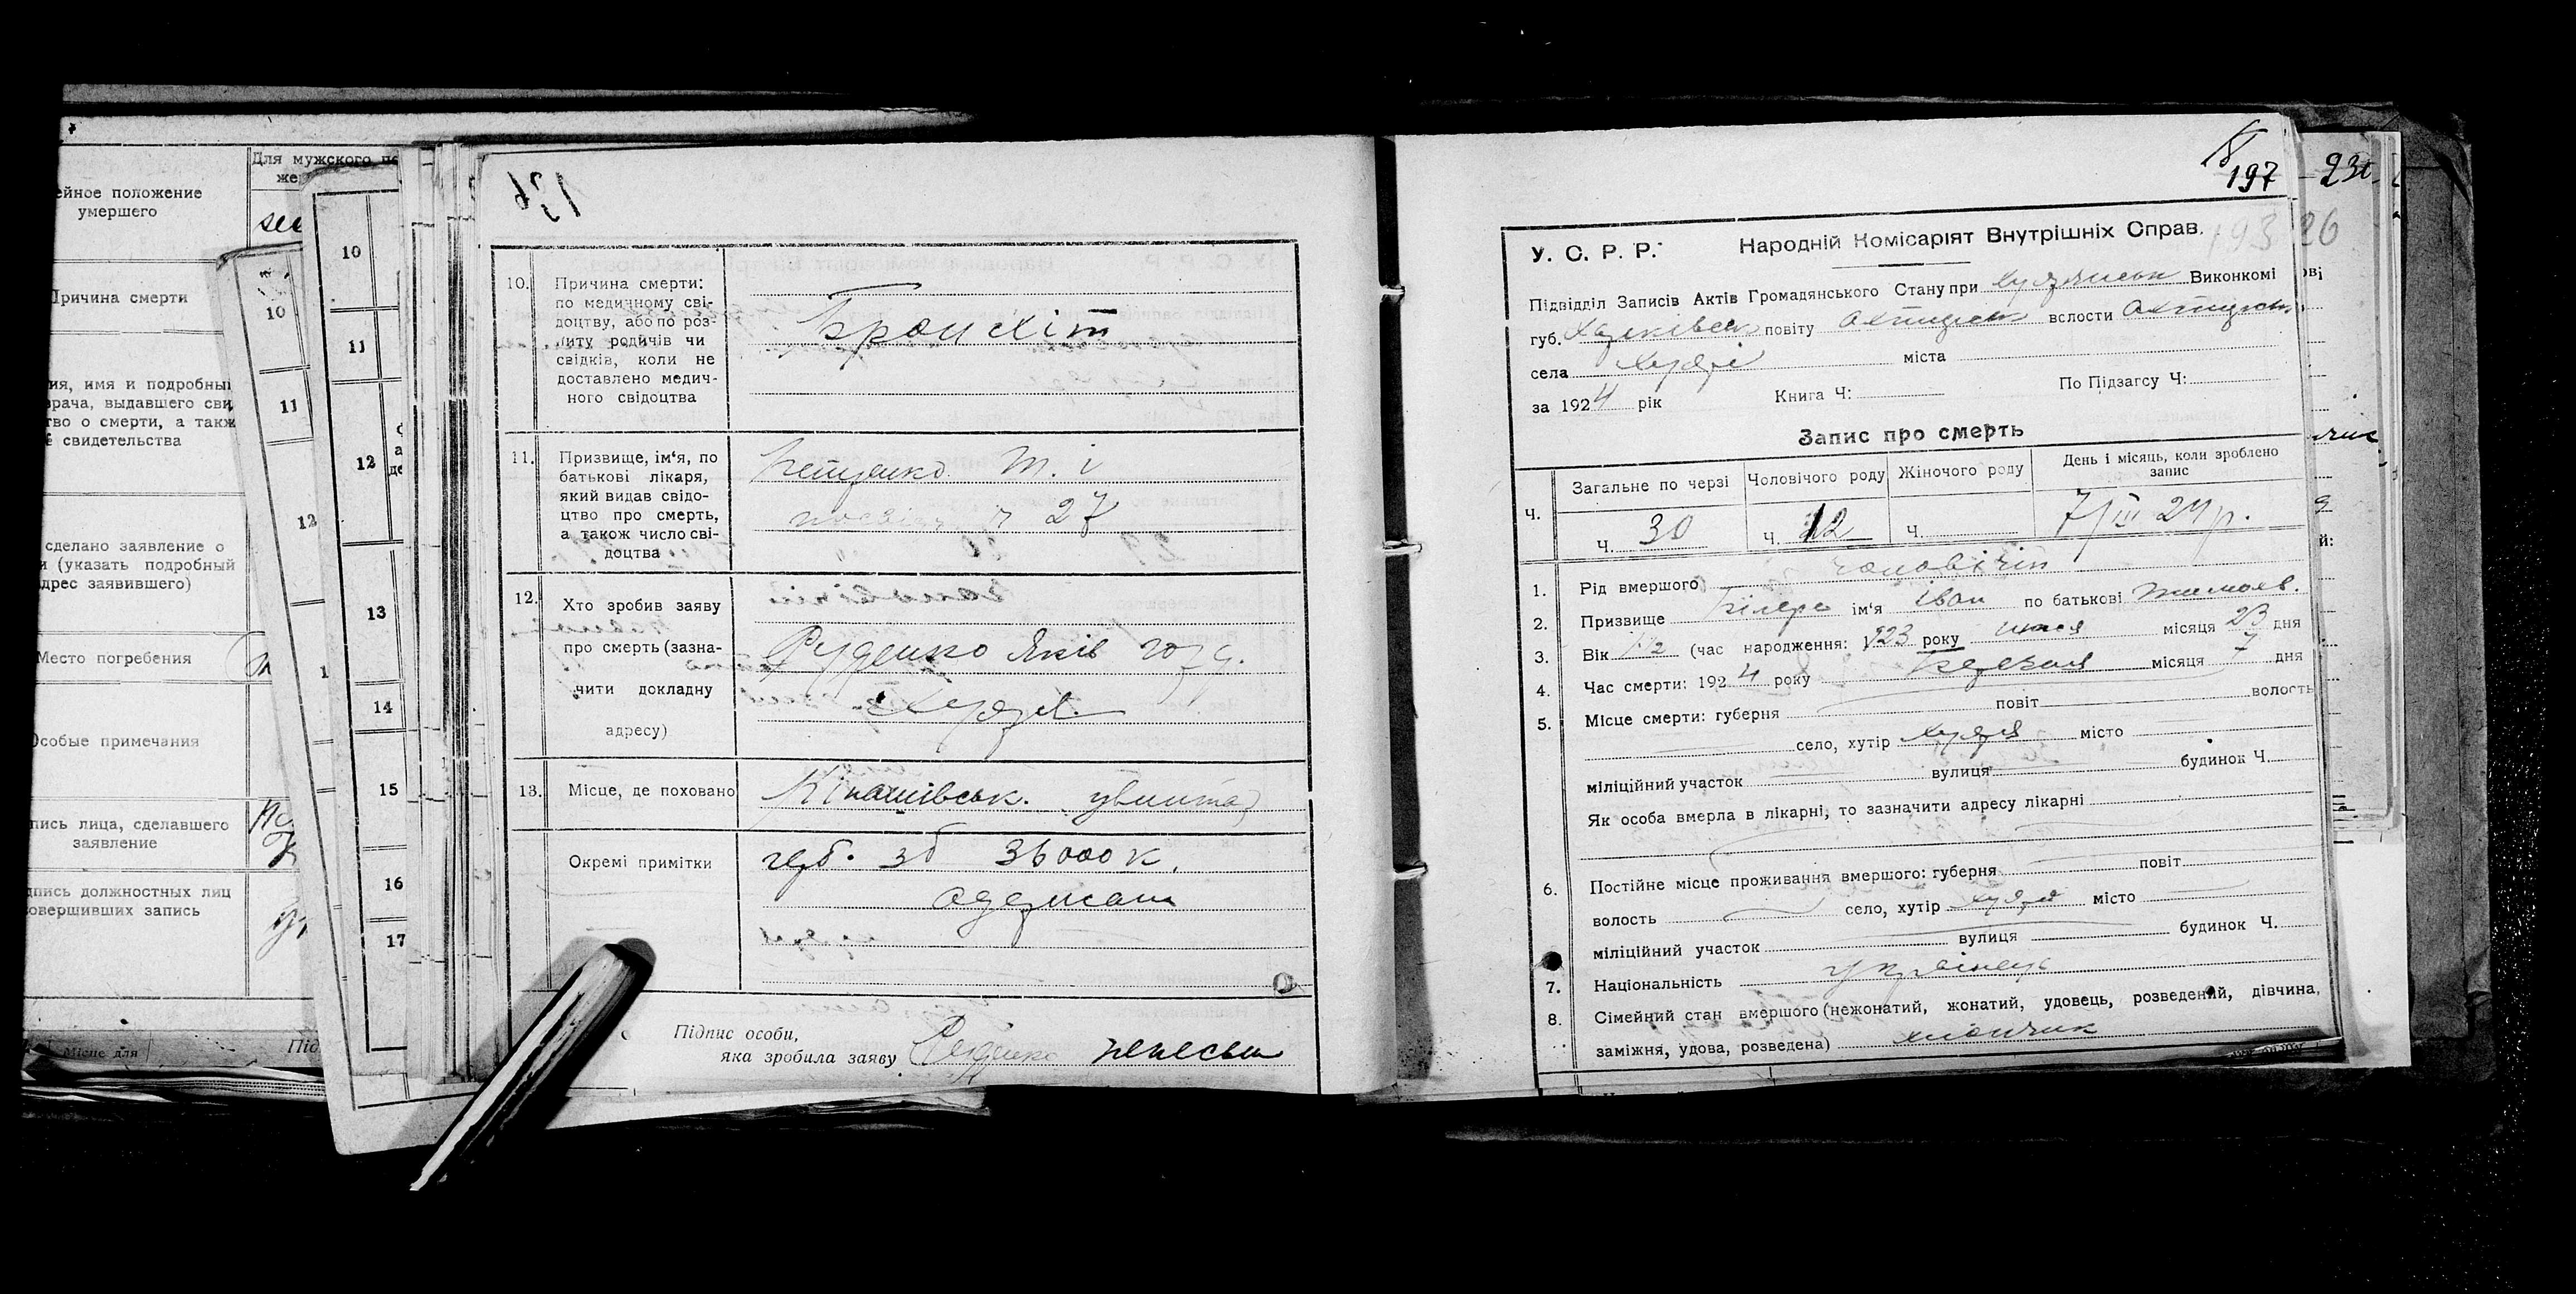 Для мужского
ейное положение
умершего
Причина смерти
ия, имя и подробный
врача, выдавшего сви
тво о смерти, а такж
свидетельства
сделано заявление о
и (указать подробный
адрес заявившего)
Место погребения
Особые примечания
пись лица, сделавшего
заявление
дпись должностных лиц
совершивших запись
10
11
12
13
14
15
16
17
10
11
12
10. Причина смерти:
по медичному сві-
доцтву, або по роз-
питу родичів чи
свідків, коли не
доставлено медич-
ного свідоцтва
Бронхіт
11. Призвище, ім'я, по
батькові лікаря,
який видав свідо-
цтво про смерть,
а також число сві-
доцтва
Т. і
27
12. Хто зробив заяву
про смерть (зазна-
чити докладну
адресу)
Руденко Яків
13. Місце, де поховано
Окремі примітки
герб. зб 36000 к.
одержан
Підпис особи,
яка зробила заяву Руденко неписьм
197
193
У. С. Р. Р. Народній Комісаріят Внутрішніх Справ.
Підвідділ Записів Актів Громадянського Стану при Виконкомі
губ. Харківськ повіту Охтирськ волости Охтирськ
села міста
за 1924 рік Книга Ч: По Підзагсу Ч:
Запис про смерть
Ч. Загальне по черзі Чоловічого роду Жіночого роду День і місяць, коли зроблено
запис
Ч. 30 Ч. 12 Ч. 7/III 24 р.
1. Рід вмершого чоловічій
2. Призвище ім'я Іван по батькові
3. Вік (час народження: 1923 року місяця 23 дня
4. Час смерти: 1924 року березня місяця 7 дня
5. Місце смерти: губерня повіт волость
село, хутір місто
міліційний участок вулиця будинок Ч.
Як особа вмерла в лікарні, то зазначити адресу лікарні
6. Постійне місце проживання вмершого: губерня повіт
волость село, хутір місто
міліційний участок вулиця будинок Ч.
7. Національність українець
8. Сімейний стан вмершого (нежонатий, жонатий, удовець, розведений, дівчина,
заміжня, удова, розведена) хлопчик